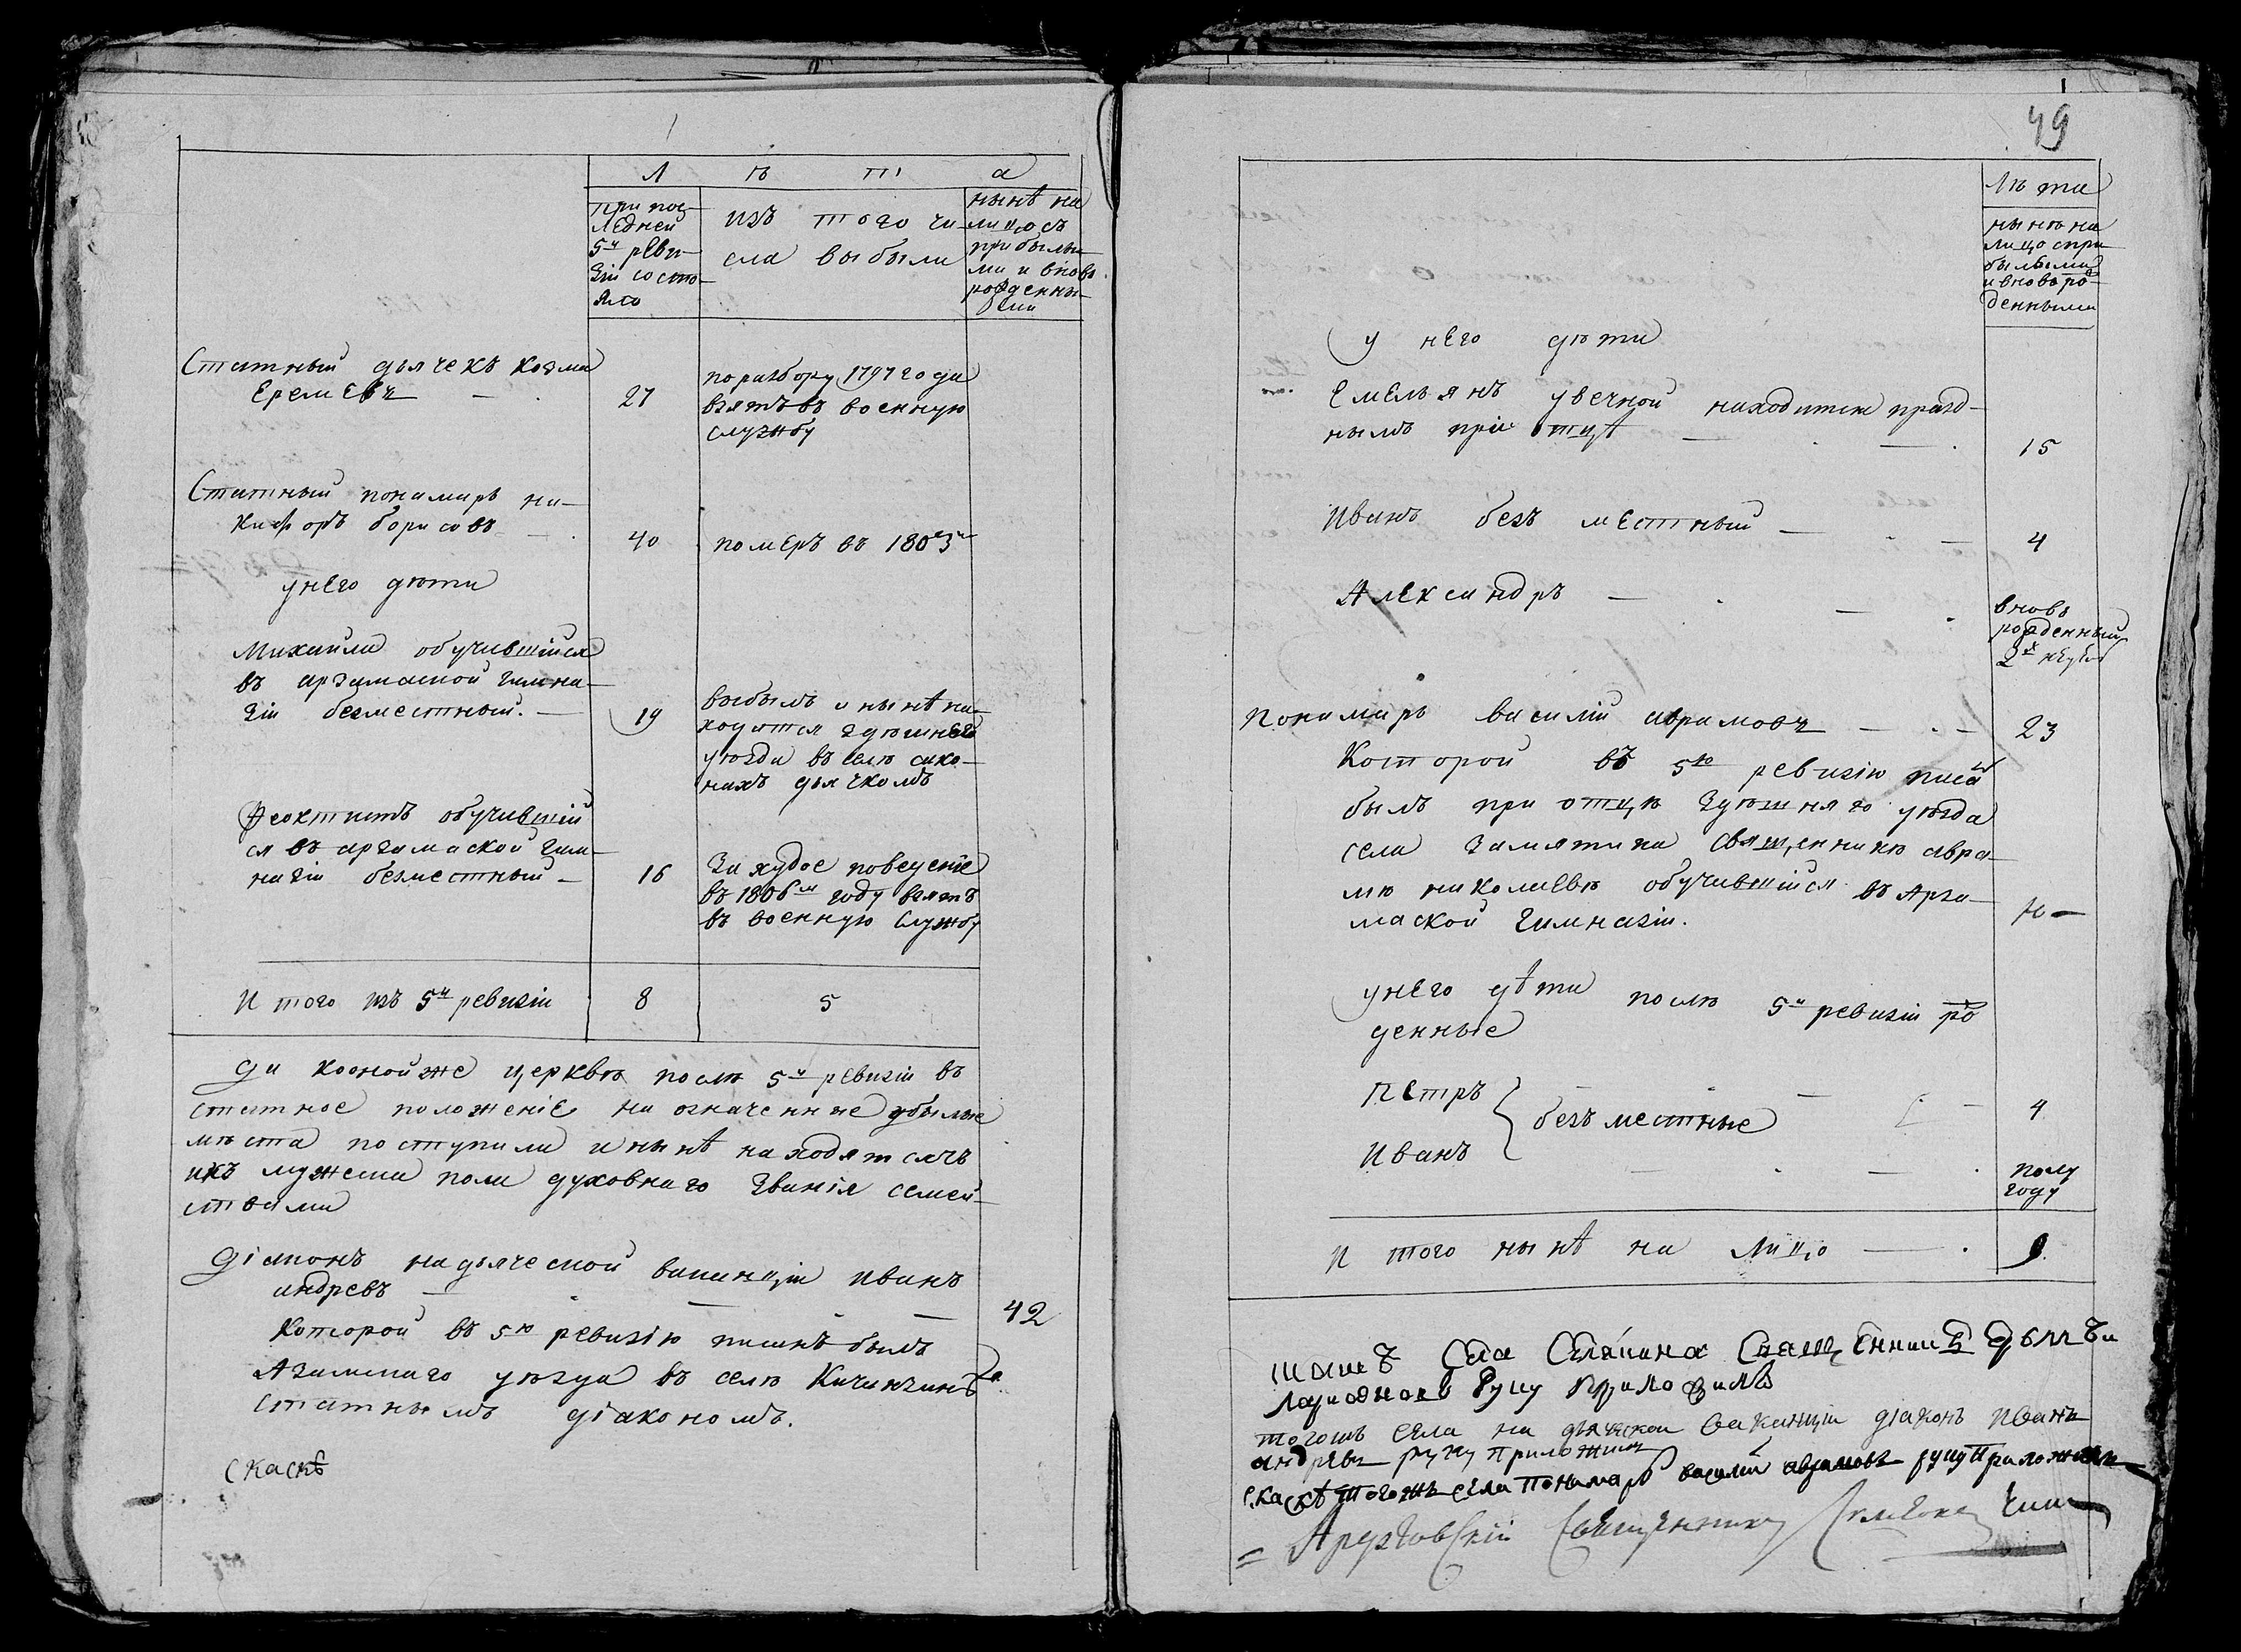 Л ѣ т а
При пос-
ледней
5й реви-
зіи состо-
яло
изъ того чи-
сла выбыли
нынѣ на
лицо съ
прибылы-
ми и вновь
рожденны-
ми
Статный дьячекъ Козма
Еремѣевъ
27
по разбору 1797 года
взятъ въ военную
службу
Статный понамарь Ни-
кифоръ Борисовъ
40
померъ въ 1803м
у него дѣти
Михайла обучившійся
въ арзамаской гимна-
зіи безместный.
19
выбылъ и нынѣ на-
ходится здѣшнего
уѣзда въ селѣ сако-
нахъ дьячкомъ
Феоктистъ обучившій
ся въ арзамаской гим-
назіи безместный
16
За худое поведеніе
въ 1806м году взятъ
въ военную службу
И того изъ 5й ревизіи
8
5
Да к оной же церквѣ послѣ 5й ревизіи въ
статное положеніе на означенные убылые
мѣста поступили и нынѣ находятся съ
ихъ мужеска пола духовнаго званія семей-
ствами
Діаконъ на дьяческой ваканціи Иванъ
андревъ
42
Которой въ 5ю ревизію писанъ былъ
уѣзда въ селѣ
статнымъ діакономъ.
Скаскѣ
49
Лѣта
нынѣ на
лицо с при
былыми
и вновь ро-
денными
у него дѣти
Емельянъ увечной находится празд-
нымъ при отцѣ
15
Иванъ безъ местный
4
Александръ
вновь
рожденный
2х недель
Понамарь василій аврамовъ
23
Которой въ 5ю ревизію писа
былъ при отцѣ здѣшняго уѣзда
села Замятина священникѣ авра-
мѣ николаевѣ обучившійся въ Арза-
маской гимназіи.
у него дѣти послѣ 5й ревизіи ро
денные
Петръ
безъ местные
4
Иванъ
полу
году
И того нынѣ на лицо
9
села Священникъ
руку приложилъ
тогожъ села на дьяческой ваканціи діаконъ Иванъ
андревъ руку приложилъ
скаскѣ тогожъ села понамарь василій аврамовъ руку приложилъ